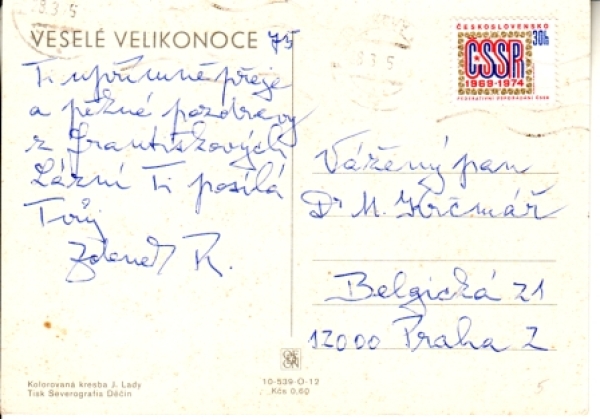 VESELÉ VELIKONOCE 75
Ti upřímně přeje
a pěkné pozdravy
z Františkových
Lázní Ti posílá
Tvůj
Zdeněk R.
ČESKOSLOVENSKO
30h
ČSSR
1969-1974
FEDERATIVNÍ USPOŘÁDÁNÍ ČSSR
Vážený pan
Dr M. Krčmář
Belgická 21
12000 Praha 2
Kolorovaná kresba J. Lady
Tisk Severografia Děčín
10-539-O-12
Kčs 0,60